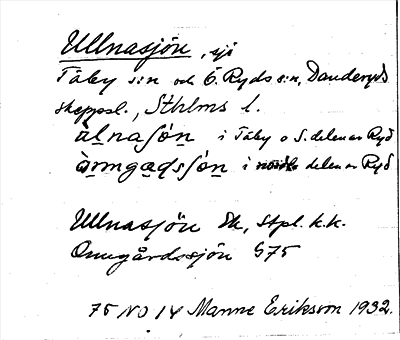 Ullnasjön, sjö
Täby s:n och Ö. Ryds s:n, Danderyds
skeppsl., Sthlms l.
ùlnasjön i Täby o S. delen av Ryd
òmgạdssjön i norra delen av Ryd
Ullnasjön Ek, Stpl. k.k.
Omgårdssjön S75
75 NO 14 Manne Eriksson 1932.